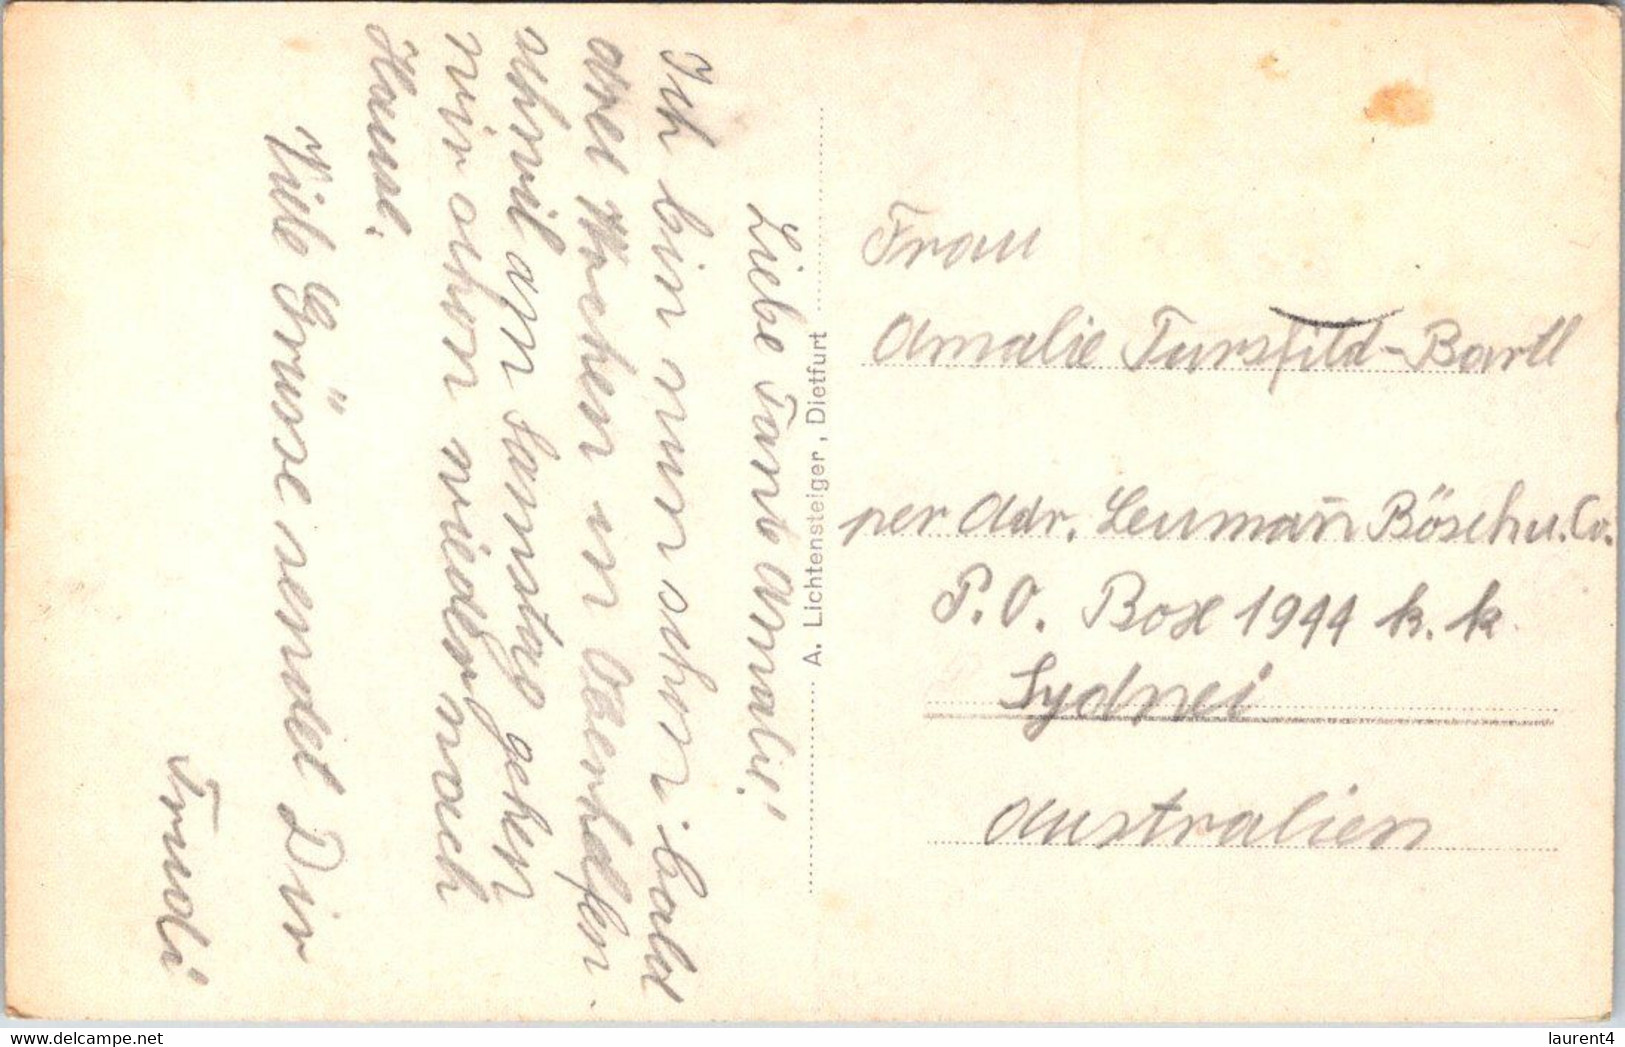 Liebe Tante Amalie!
Ich bin nun schon bald
drei Wochen in Oberhelfen-
schwil am Samstag gehen
wir schon wieder nach
Hause.
Viele Grüsse sendet Dir
Trudi
A. Lichtensteiger, Dietfurt
Frau
Amalie Tursfild-Bartl
per Adr. Leuman̄ Bösch u. Co.
P.O. Box 1944 k.k.
Sydnei
Australien
laurent4